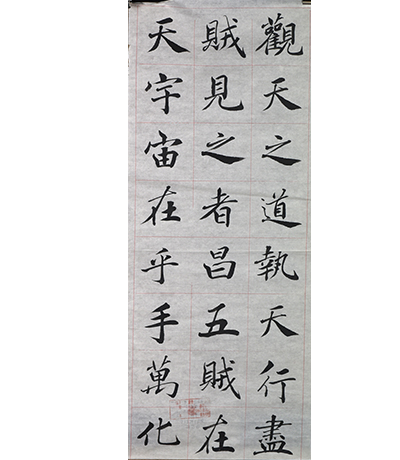 觀天之道執天行盡
賊見之者昌五賊在
天宇宙在乎手萬化